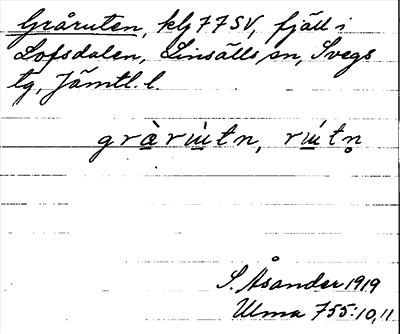 Gråruten, klj 77 SV, fjäll i
Lofsdalen, Linsälls sn, Svegs
tg, Jämtl. l.
S. Åsander 1919
Ulma 755:10,11